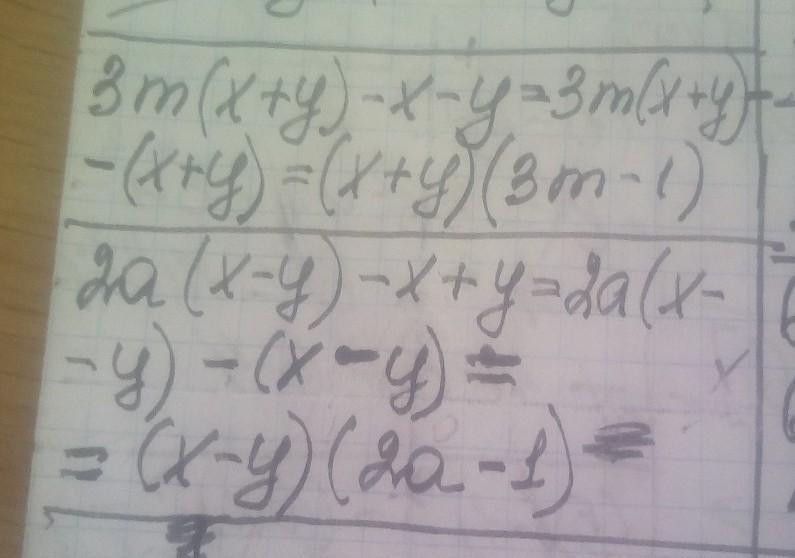 3m(x+y)-x-y=3m(x+y)-
-(x+y)=(x+y)(3m-1)
2a(x-y)-x+y=2a(x-
-y)-(x-y)=
=(x-y)(2a-1)